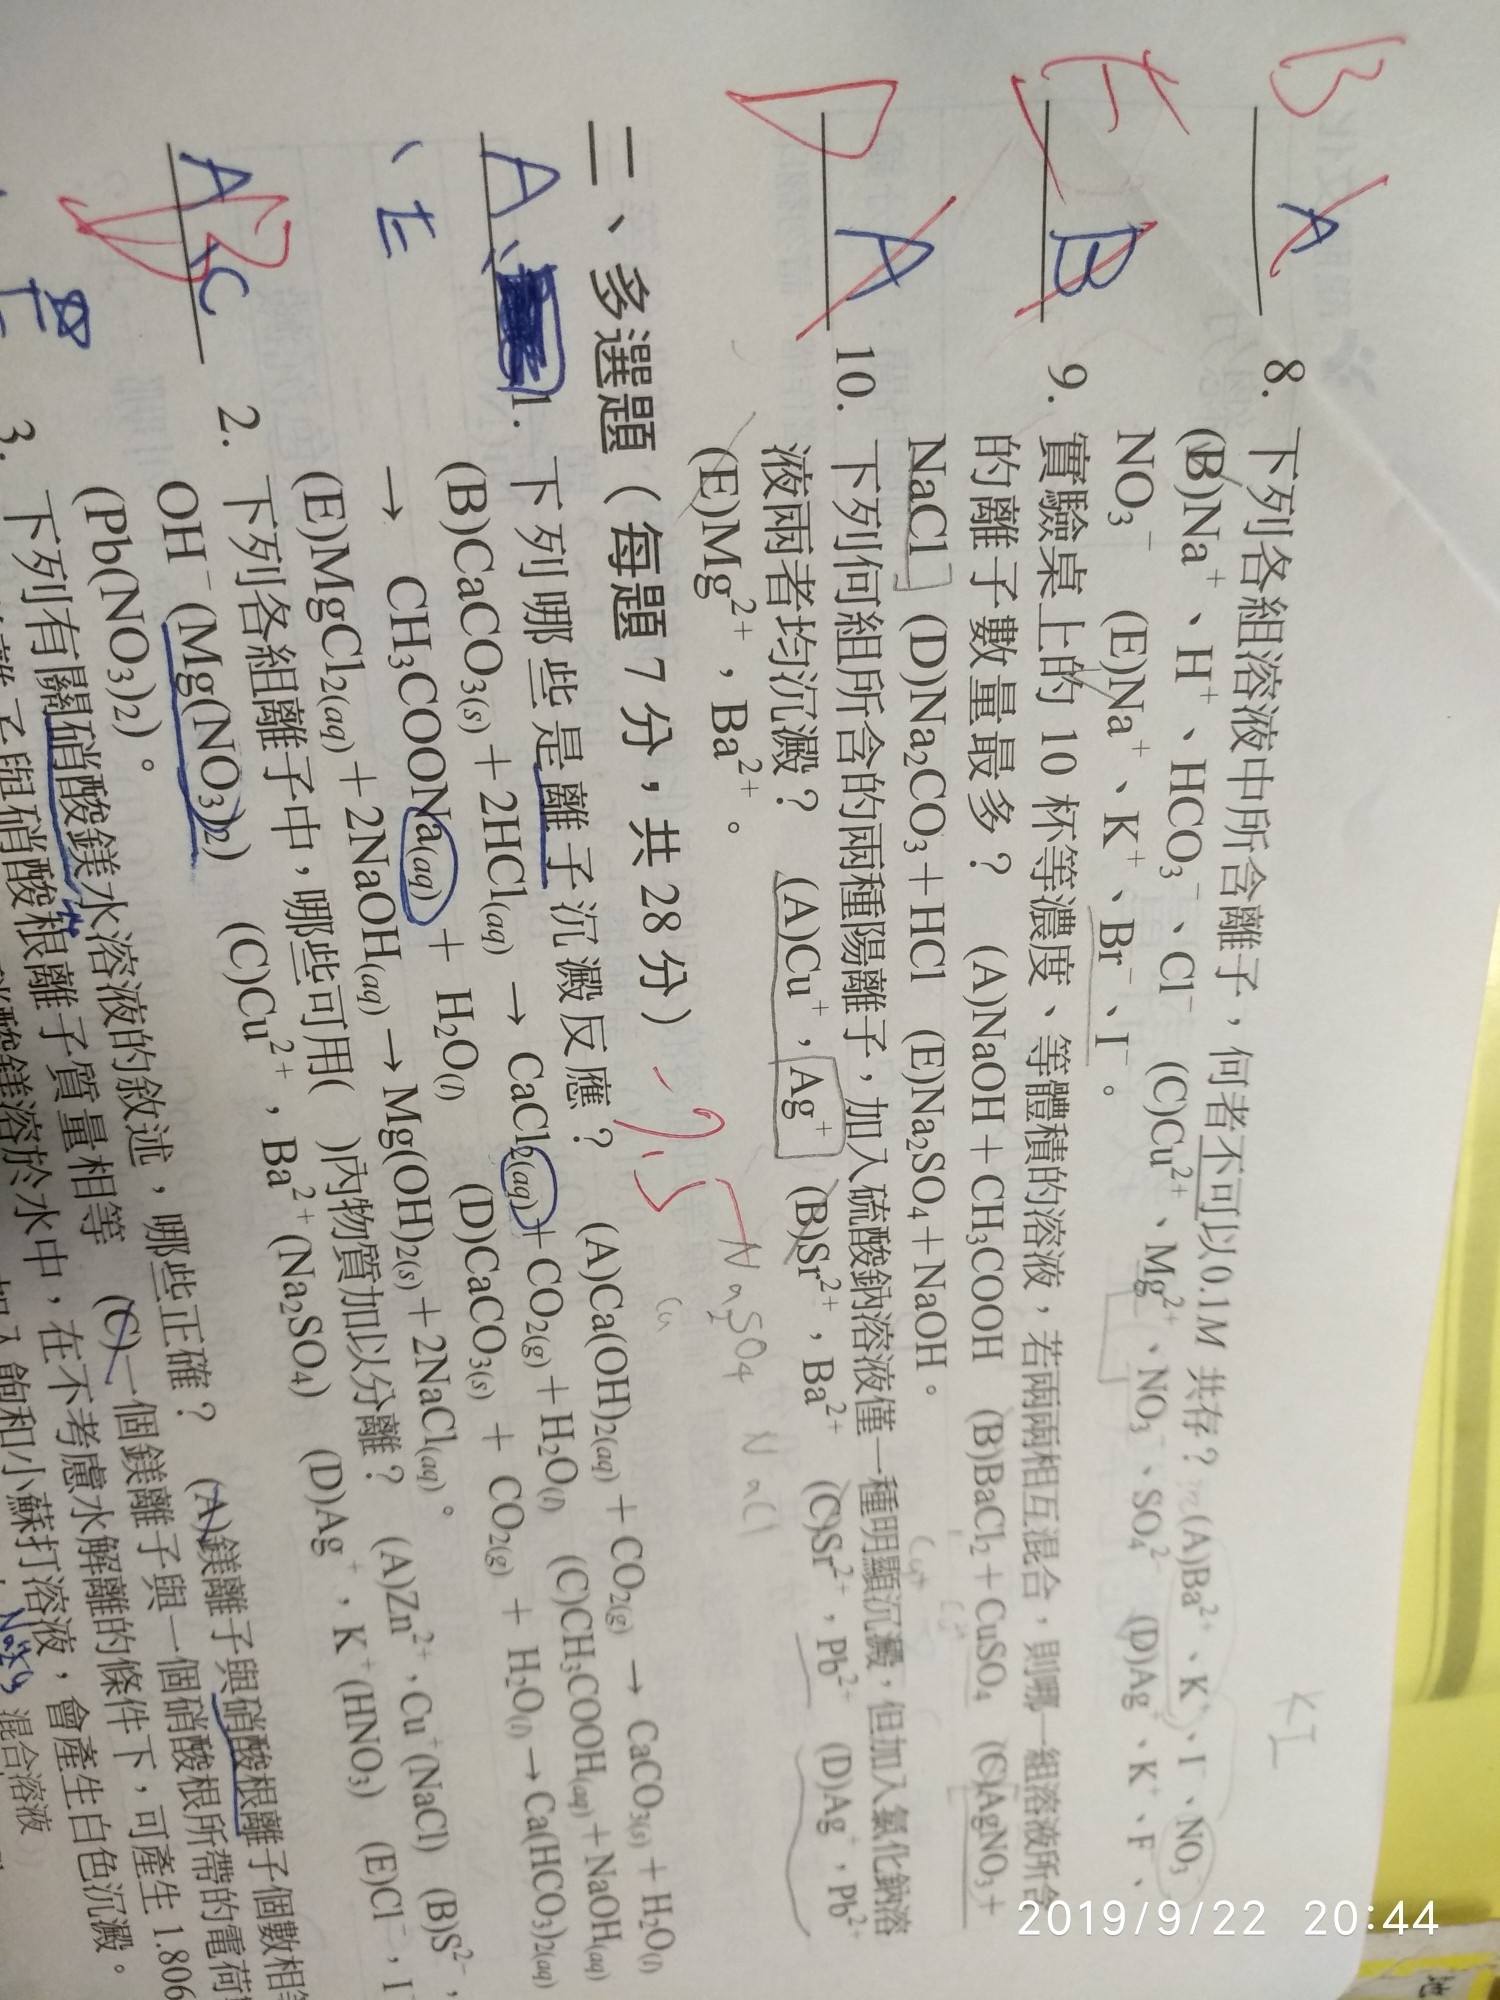 KI
8. 下列各組溶液中所含離子，何者不可以0.1M 共存？ (A)Ba²⁺、K⁺、I⁻、NO₃⁻
(B)Na⁺、H⁺、HCO₃⁻、Cl⁻ (C)Cu²⁺、Mg²⁺、NO₃⁻、SO₄²⁻ (D)Ag⁺、K⁺、F⁻、
NO₃⁻ (E)Na⁺、K⁺、Br⁻、I⁻。
B A
9. 實驗桌上的 10 杯等濃度、等體積的溶液，若兩兩相互混合，則哪一組溶液所含
的離子數量最多？ (A)NaOH＋CH₃COOH (B)BaCl₂＋CuSO₄ (C)AgNO₃＋
NaCl (D)Na₂CO₃＋HCl (E)Na₂SO₄＋NaOH。
E B
10. 下列何組所含的兩種陽離子，加入硫酸鈉溶液僅一種明顯沉澱，但加入氯化鈉溶
液兩者均沉澱？ (A)Cu⁺，Ag⁺ (B)Sr²⁺，Ba²⁺ (C)Sr²⁺，Pb²⁺ (D)Ag⁺，Pb²⁺
(E)Mg²⁺，Ba²⁺。
D A
Na₂SO₄ NaCl
二、多選題（每題 7 分，共 28 分）
A、E
1. 下列哪些是離子沉澱反應？ (A)Ca(OH)₂(aq)＋CO₂(g) → CaCO₃(s)＋H₂O(l)
(B)CaCO₃(s)＋2HCl(aq) → CaCl₂(aq)＋CO₂(g)＋H₂O(l) (C)CH₃COOH(aq)＋NaOH(aq)
→ CH₃COONa(aq)＋H₂O(l) (D)CaCO₃(s)＋CO₂(g)＋H₂O(l)→Ca(HCO₃)₂(aq)
(E)MgCl₂(aq)＋2NaOH(aq)→Mg(OH)₂(s)＋2NaCl(aq)。
A C
2. 下列各組離子中，哪些可用( )內物質加以分離？ (A)Zn²⁺，Cu⁺(NaCl) (B)S²⁻，
OH⁻(Mg(NO₃)₂) (C)Cu²⁺，Ba²⁺(Na₂SO₄) (D)Ag⁺，K⁺(HNO₃) (E)Cl⁻，I
(Pb(NO₃)₂)。
3. 下列有關硝酸鎂水溶液的敘述，哪些正確？ (A)鎂離子與硝酸根離子個數相
離子與硝酸根離子質量相等 (C)一個鎂離子與一個硝酸根所帶的電荷
硝酸鎂溶於水中，在不考慮水解離的條件下，可產生 1.806
飽和小蘇打溶液，會產生白色沉澱。
混合溶液
地
2019/9/22 20:44